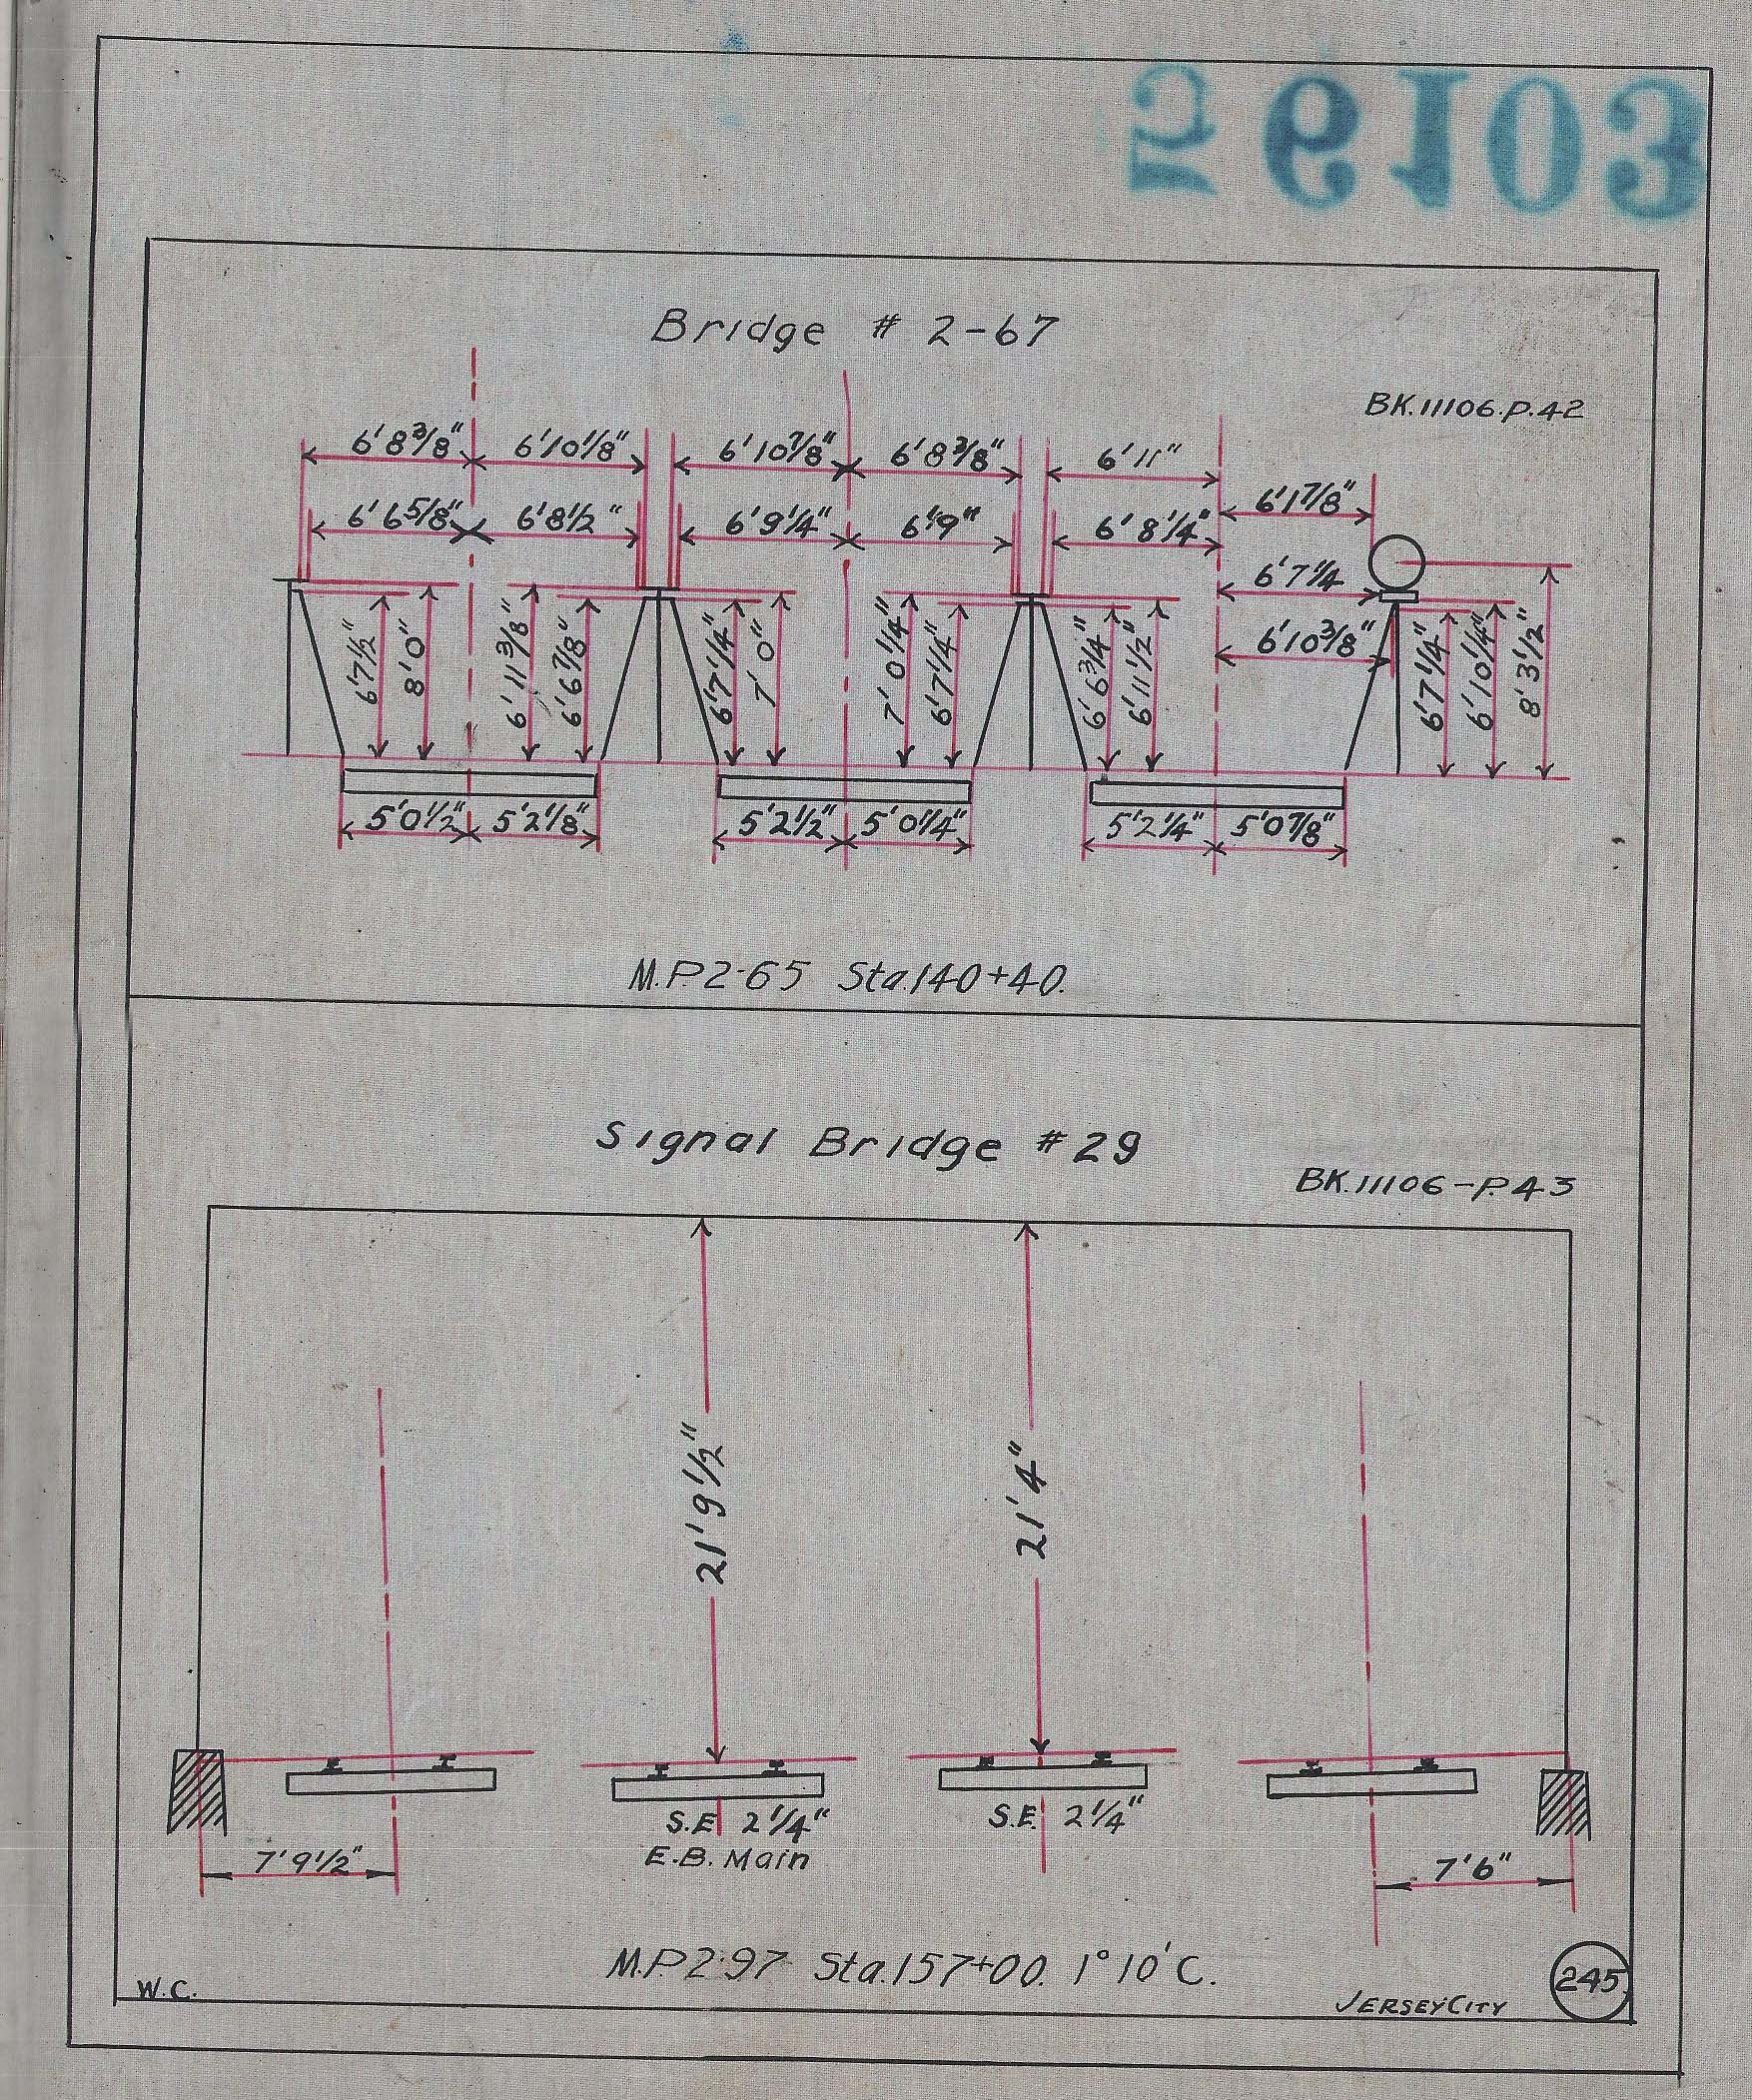 59103
Bridge # 2-67
BK.11106.P.42
6'8 3/8" 6'10 1/8" 6'10 7/8" 6'8 3/8" 6'11"
6'1 7/8"
6'6 5/8" 6'8 1/2" 6'9 1/4" 6'9" 6'8 1/4"
6'7 1/4
6'10 3/8"
6'7 1/2" 8'0" 6'11 3/8" 6'6 7/8" 6'7 1/4" 7'0" 7'0 1/4" 6'7 1/4" 6'6 3/4" 6'11 1/2" 6'7 1/4" 6'10 1/4" 8'3 1/2"
5'0 1/2" 5'2 1/8" 5'2 1/2" 5'0 1/4" 5'2 1/4" 5'0 7/8"
M.P.2-65 Sta.140+40.
Signal Bridge #29
BK.11106-P.43
21'9 1/2" 21'4"
S.E 2 1/4" S.E. 2 1/4"
E.B. Main
7'9 1/2" 7'6"
M.P.2.97 Sta.157+00. 1°10'C.
W.C.
JERSEY CITY
245